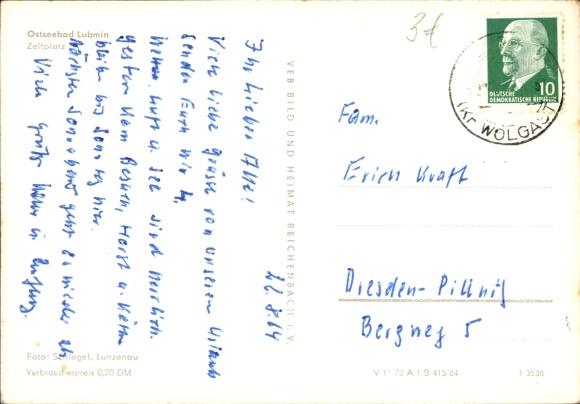 Ostseebad Lubmin
Zeltplatz
3€
DEUTSCHE
DEMOKRATISCHE REPUBLIK
10
(Kr. WOLGAST)
22.8.64
Ihr lieben Alle!
Viele liebe Grüsse von unserem Urlaub
senden Euch wir 4.
Wetter, Luft u. See sind herrlich.
Gestern kam Besuch, Horst u. Käthe
bleiben bis Sonntag hier.
Nächsten Sonnabend geht es wieder ab
Viele Grüße
VEB BILD UND HEIMAT REICHENBACH I. V.
Fam.
Erich Kraft
Dresden-Pillnitz
Bergweg 5
Foto: Schlegel, Lunzenau
Verbraucherpreis 0,20 DM
V 11 28 A 1 B 415/64
1-3536